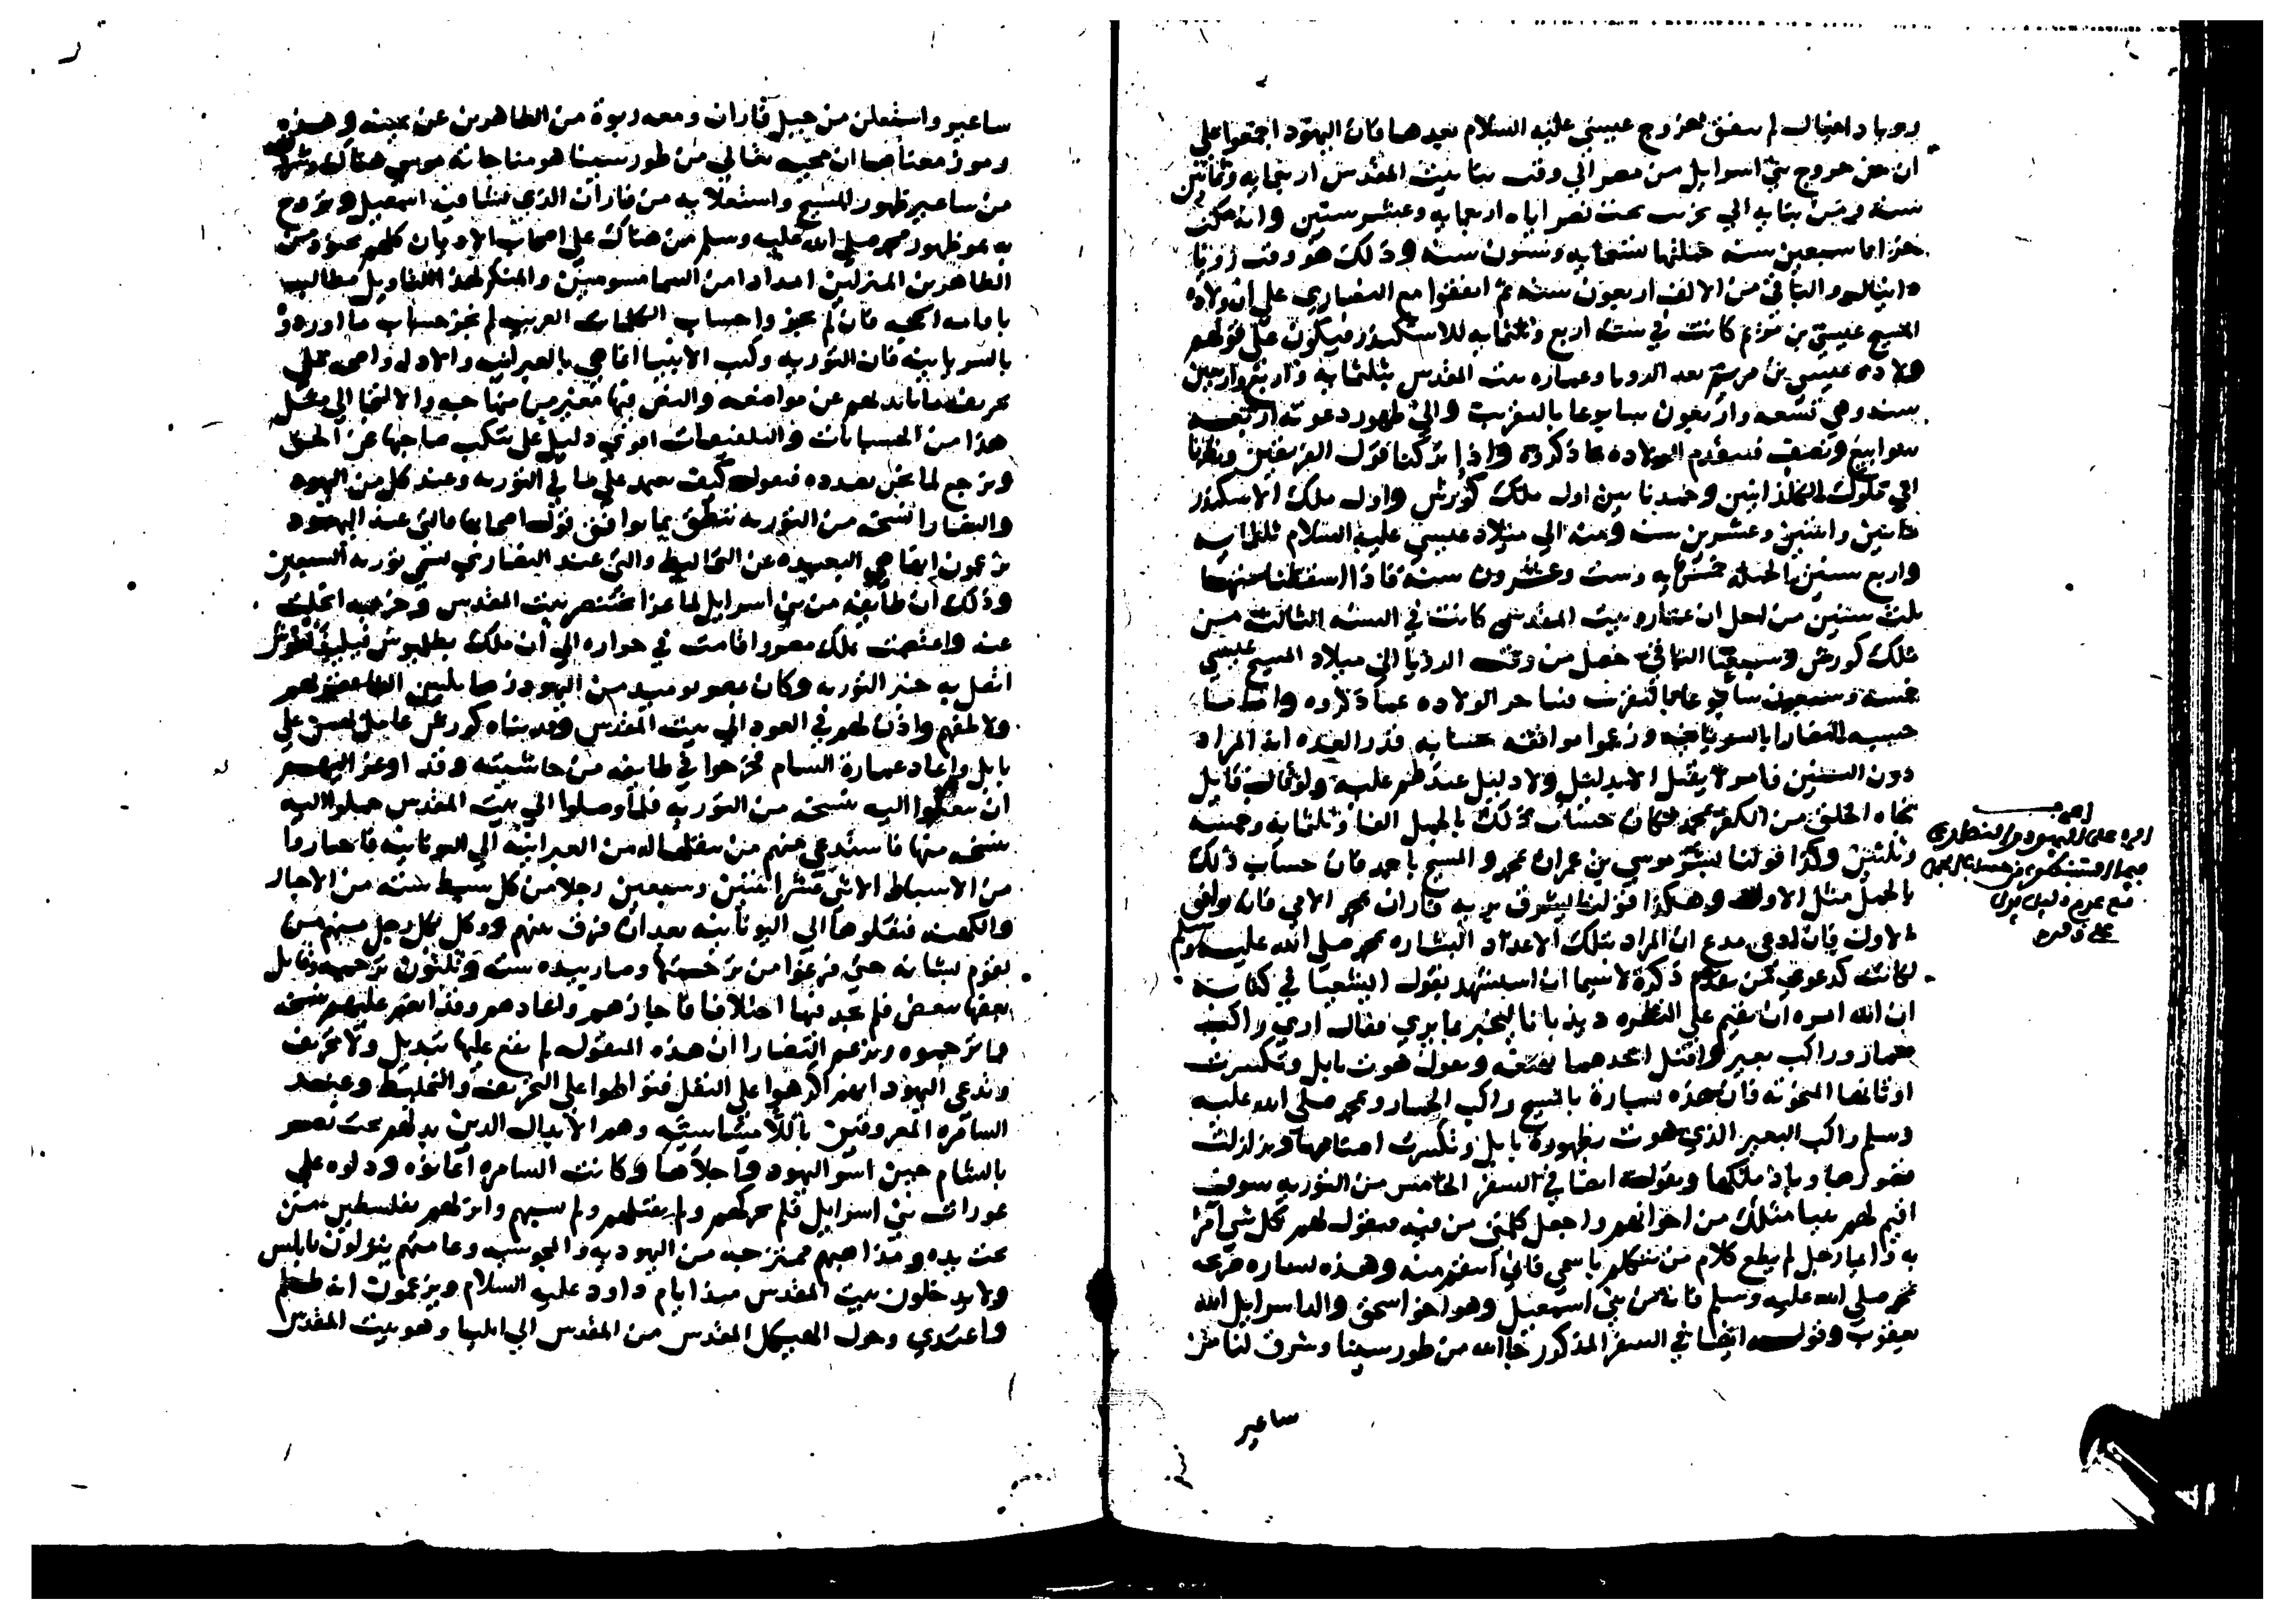 رويا دانيال لم يتفق لخروج عيسى عليه السلام بعدها فان اليهود اجتمعوا على
ان من خروج بني اسرايل من مصر الى وقت بنا بيت المقدس اربعمايه وثمانين
سنة ومن بنايه الى تخريب بخت نصر اياه اربعمايه وعشر سنين وانه مكث
خرابا سبعين سنه جملتها تسعمايه وستون سنه وذلك هو وقت رويا
دانيال والباقي من الالف اربعون سنه ثم اتفقوا مع النصاري على ان ولاده
المسيح عيسى بن مريم كانت في سنة اربع وثلثمايه للاسكندر فيكون على قولهم
ولاده عيسى بن مريم بعد الرويا وعماره بيت المقدس بثلثمايه واربع واربعين
سنه وهي تسعه واربعون سابوعا بالتقريب والى ظهور دعوته اربعة
سوابيع ونصف فيتقدم الولاده ما ذكروه واذا تركنا قول الفريقين ونظرنا
الي ملوك الكلدانيين وجدنا بين اول ملك كورش واول ملك الاسكندر
مايتين واثنين وعشرين سنه ومنه الى ميلاد عيسى عليه السلام ثلثمايه
واربع سنين الجملة خمسمايه وست وعشرون سنة فاذا اسقطنا منها
ثلث سنين من اجل ان عمارة بيت المقدس كانت في السنه الثالثة من
ملك كورش وسبعنا الباقي حصل من وقت الرويا الى ميلاد المسيح عيسى
خمسة وسبعون سابوعا بالتقريب فيتاخر الولاده عما ذكروه واما ما
حسبه النصارا بالسريانيه وزعموا موافقه حسابه قدر العده انه المراد
دون السنين فامر لا يقبل الا بدليل ولا دليل عندهم عليه ولو قال قايل
نجاه الخلق من الكفر بمحمد فكان حساب ذلك بالجمل الفا وثلثمايه وخمسه
وثلثين وكذا قولنا بشر موسي بن عمران بمحمد والمسيح باحمد فان حساب ذلك
بالجمل مثل الاول وهكذا قولنا ليشرق بريه فاران بمحمد الامي فان يوافق
الاول فان ادعى مدع ان المراد بتلك الاعداد البشاره بمحمد صلى الله عليه وسلم
لكانت كدعوي من تقدم ذكره لا سيما ان استشهد بقول ايشعيا في كتابه
ان الله امره ان يقيم على المنظره ديدبانا ليخبر ما يري فقال اري راكب
حمار وراكب بعير واقبل احدهما يهتف ويقول هوت بابل وتكسرت
اوثانها المنحوته فان هذه بشارة بالمسيح راكب الحمار وبمحمد صلى الله عليه
وسلم راكب البعير الذي هوت بظهوره بابل وتكسرت اصنامها وتزلزلت
قصورها وباد ملكها وبقوله ايضا في السفر الخامس من التوريه سوف
اقيم لهم نبيا مثلك من اخوانهم واجعل كلمتي من فيه فيقول لهم كل شي آمر
به وايما رجل لم يطع كلام من يتكلم باسمي فاني انتقم منه وهذه بشاره
محمد صلى الله عليه وسلم فانه من بني اسمعيل وهو اخو اسحق والد اسرايل الله
يعقوب وقوله ايضا في السفر المذكور جا الله من طور سينا وشرق لنا من
ساعير
الرد على اليهود والنصاري
فيما استنبطوه من حساب الجمل
مع عدم دليل يدل
على ذلك
ساعير واستعلن من جبل فاران ومعه ربوة من الطاهرين عن يمينه وهذه
رموز معناها ان مجيه تعالى من طور سينا هو مناجاته موسي هناك وشروقه
من ساعير ظهور المسيح واستعلانه من فاران الذي نشا فيه اسمعيل وتزوج
به هو ظهور محمد صلى الله عليه وسلم من هناك على اصحاب الاديان كلهم بجنود من
الطاهرين المنزلين امدادا من السما مسومين والمنكر لهذا التاويل مطالب
باقامه الحجه فان لم يجيزوا حساب الكلمات العربيه لم نجز حساب ما اوردوه
بالسريانيه فان التوريه وكتب الانبيا انما هي بالعبرانيه والاول واحي على
تحريفها باينه لهم عن مواضعه والنص فيها معتبر من مناحيه والالتجا الي مثل
هذا من الحسبانات والتلفيقات اقوي دليل على تنكب صاحبها عن الحق
ونرجع لما نحن بصدده فنقول كيف يعتمد على ما في التوريه وعند كل من اليهود
والنصارا نسخه من التوريه تنطق بما يوافق قول اصحابها فالتي عند اليهود
يزعمون انها هي البعيده عن التخاليط والتي عند النصاري تسمى توريه السبعين
وذلك ان طايفه من بني اسرايل لما غزا بختنصر بيت المقدس وخربه انجلت
عنه واعتصمت بملك مصر واقامت في جواره الى ان ملك بطلميوس فيلدلفوس
اتصل به خبر التوريه وكان بمصر يوميد من اليهود زها ثلثين الفا فقربهم
ولاطفهم واذن لهم في العود الي بيت المقدس وقد بناه كورش عامل بهمن على
بابل واعاد عمارة الشام فخرجوا في طايفه من حاشيته وقد اوعز اليهم
ان يبعثوا اليه نسخه من التوريه فلما وصلوا الي بيت المقدس حملوا اليه
نسخه منها فاستدعي منهم من ينقلها له من العبرانيه الي اليونانيه فاختاروا
من الاسباط الاثني عشر اثنين وسبعين رجلا من كل سبط سته من الاحبار
والكهنه فنقلوها الي اليونانيه بعد ان فرق بينهم ووكل بكل رجل منهم من
يقوم بشانه حتي فرغوا من ترجمتها وصار بيده ست وثلثون ترجمه وقابل
بعضها ببعض فلم يجد فيها اختلافا فاجازهم واعادهم وقد انعم عليهم بنسخه
مما ترجموه ويزعم النصارا ان هذه المنقوله لم يقع عليها تبديل ولا تحريف
وتدعي اليهود انهم اكرهوا على النقل فتواطوا على التحريف والتخليط وعند
السامره المعروفين باللامساسيه وهم الابدال الدين بدلهم بخت نصر
بالشام حين اسر اليهود واجلاها وكانت السامره اعانوه ودلوه على
عورات بني اسرايل فلم يحركهم ولم يقتلهم ولم يسبهم وانزلهم بفلسطين من
تحت يده ومذاهبهم ممتزجه من اليهوديه والمجوسيه وعامتهم ينزلون نابلس
ولا يدخلون بيت المقدس منذ ايام داود عليه السلام ويزعمون انه ظلم
واعتدي وحول الهيكل المقدس من المقدس الي ايليا وهو بيت المقدس